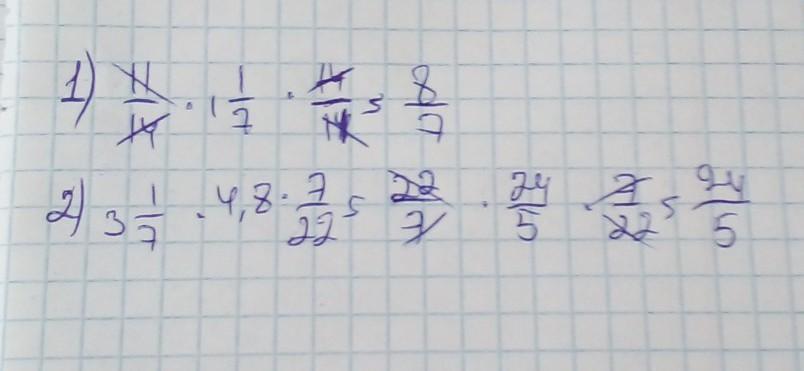 1) 11/14 · 1 1/7 · 14/11 = 8/7
2) 3 1/7 · 4,8 · 7/22 = 22/7 · 24/5 · 7/22 = 24/5